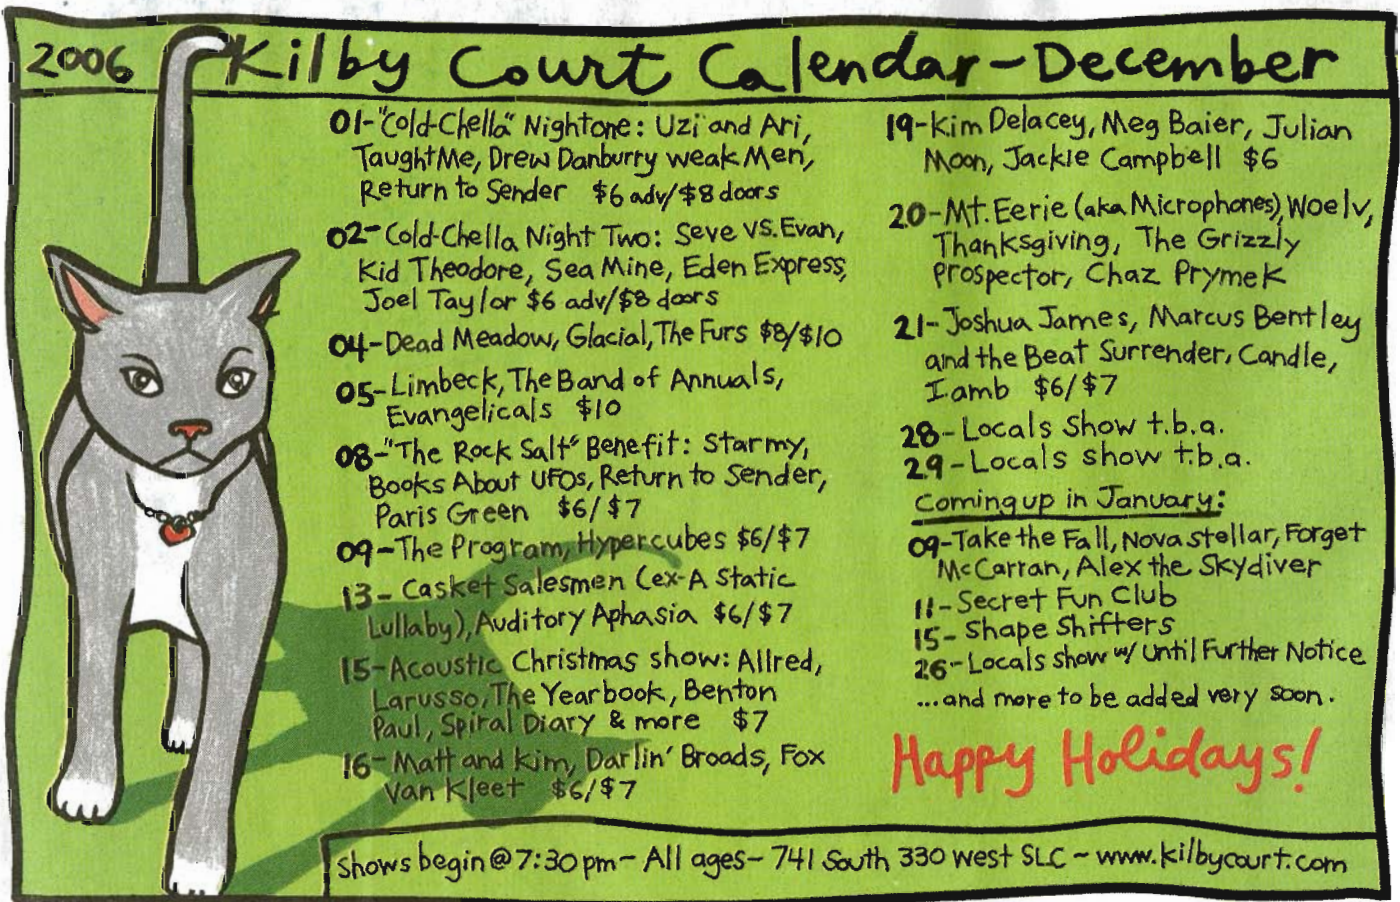 2006 Kilby Court Calendar - December
01-"Cold-Chella" Nightone: Uzi and Ari,
TaughtMe, Drew Danburry weak Men,
Return to Sender $6 adv/$8 doors
02-Cold-Chella Night Two: Seve VS. Evan,
Kid Theodore, Sea Mine, Eden Express,
Joel Taylor $6 adv/$8 doors
04-Dead Meadow, Glacial, The Furs $8/$10
05-Limbeck, The Band of Annuals,
Evangelicals $10
08-"The Rock Salt" Benefit: Starmy,
Books About UFOs, Return to Sender,
Paris Green $6/$7
09-The Program, Hypercubes $6/$7
13- Casket Salesmen (ex-A Static
Lullaby), Auditory Aphasia $6/$7
15-Acoustic Christmas show: Allred,
Larusso, The Yearbook, Benton
Paul, Spiral Diary & more $7
16-Matt and Kim, Darlin' Broads, Fox
Van Kleet $6/$7
19-Kim Delacey, Meg Baier, Julian
Moon, Jackie Campbell $6
20-Mt. Eerie (aka Microphones), Woelv,
Thanksgiving, The Grizzly
Prospector, Chaz Prymek
21-Joshua James, Marcus Bentley
and the Beat Surrender, Candle,
Iamb $6/$7
28-Locals Show t.b.a.
29-Locals show t.b.a.
Coming up in January:
09-Take the Fall, Nova stellar, Forget
McCarran, Alex the Skydiver
11-Secret Fun Club
15- Shape Shifters
26-Locals show w/ Until Further Notice
...and more to be added very soon.
Happy Holidays!
Shows begin @ 7:30 pm - All ages - 741 South 330 west SLC ~ www.kilbycourt.com